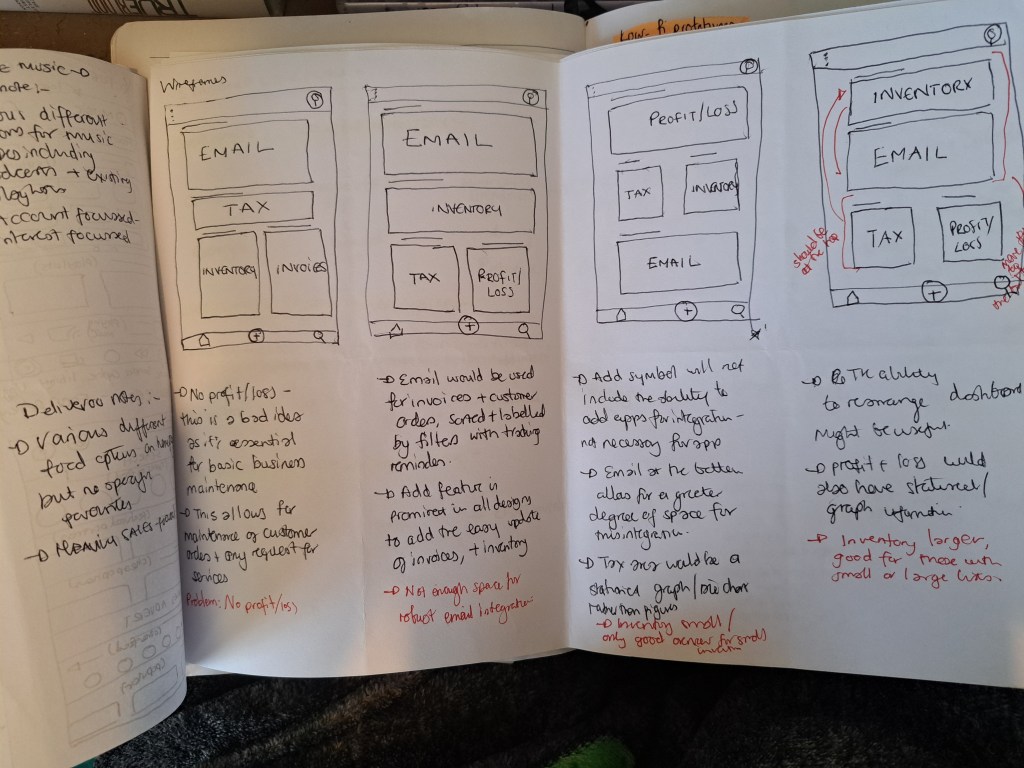 Low-fi prototypes
MUSIC
note:-
different
for music
including
+ existing
Account focussed
interest focussed
Deliveroo notes:-
→ Various different
food options on
but no specific
favourites
→ Heavily sales
Wireframes
P
EMAIL
TAX
INVENTORY
INVOICES
+
→ No profit/loss -
this is a bad idea
as it's essential
for basic business
maintenance
→ This allows for
maintenance of customer
orders + any request for
services
Problem: No profit/loss
P
EMAIL
INVENTORY
TAX
PROFIT/
LOSS
+
→ Email would be used
for invoices + customer
orders, sorted + labelled
by filters with
reminder.
→ Add feature is
in all designs
to add the easy update
of invoices, + inventory
→ Not enough space for
robust email integration
P
PROFIT/LOSS
TAX
INVENTORY
EMAIL
+
→ Add symbol will not
include the ability to
add apps for integration -
not necessary for app
→ Email at the bottom
allows for a greater
degree of space for
this integration.
→ Tax area would be a
graph/pie chart
figures
→ Inventory small/
only good overview for small
P
INVENTORY
EMAIL
TAX
PROFIT/
LOSS
+
should be
at the top
→ The ability
to rearrange dashboard
might be useful.
→ profit + loss would
also have
graph information.
→ Inventory larger,
good for those with
small or large